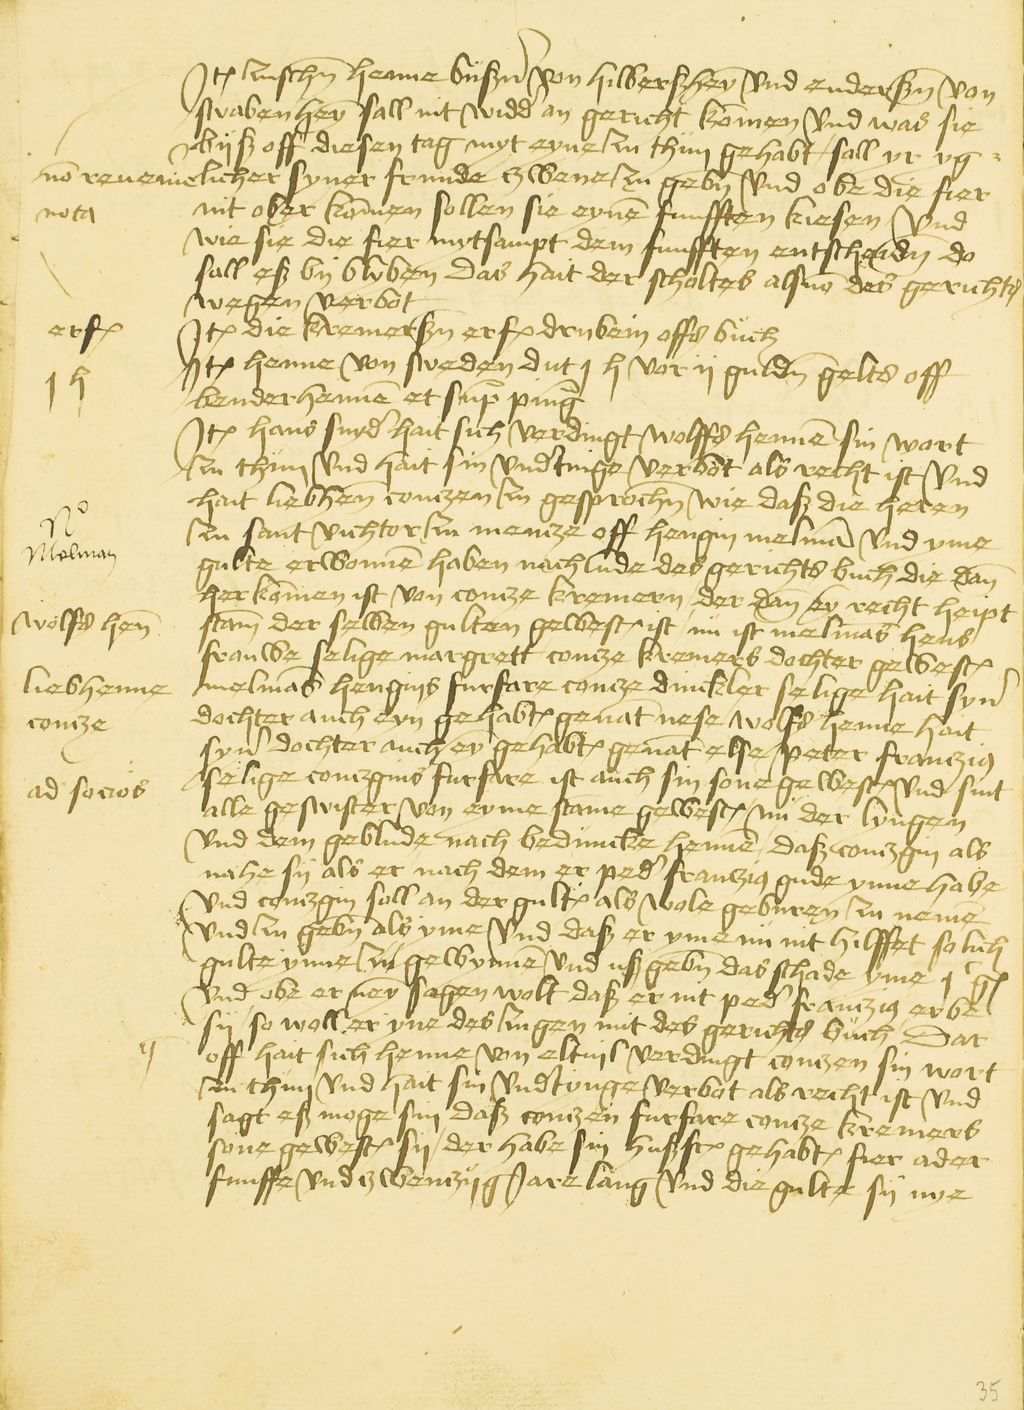 Jt(em) zusch(e)n henne bußn(er) von hilberßhey(m) vnd enders(e)n von
swabenhey(m) sall nit widd(er) an gericht kom(m)en vnd was sie
biiß off diesen tag myt eyne zu thun gehabt / sall yr yg=
no(n) revenie licher syner frunde zwene zu geb(e)n vnd obe die fier
nota nit ober kom(m)en sollen sie eyne(n) funfften kiesen vnd
wie sie die fier mytsampt dem funfften entscheid(e)n do
sall eß by bliben das hait der scholtes also vo(n) des gerichts
wegen verbot
erf(olgt) Jt(em) die kremers(e)n erf(olgt) drubein offs buch
Jt(em) henne von sweden dut j h vor ij guld(e)n gelts off
j h
benderhenne(n) et sup(ra) pin(us)
Jt(em) hans snyd(er) hait sich verdingt wolffs henne(n) sin wort
zu thun vnd hait sin vnd(er)tinge verbot als recht ist vnd
hait liebhen(n) conczen zu gesproch(e)n wie daß die heren
No zu sant vichtor zu mencze off hengin melma(n) vnd yme
Melman
gulte erwonne(n) haben nach lude des gerichts buch die dan(n)
her kom(m)en ist von concze kremern der dan(n) ey(n) recht heipt
wolfs hen(n) stam(m) der selben gulten gewest ist / nu ist melma(n)s hens
frauwe selige margrett concze kremers dochter gewest
liebhenne melma(n)s hengins furfare concze dinckler selige hait syn(er)
concze dochter auch eyn gehabt gena(n)t nese wolfs henne hait
syn(er) dochter auch ey(n) gehabt gena(n)t else / peter franczig
ad socios selige conczgins furfare ist auch sin sone gewest vnd sint
alle geswister von eyme stam(m)e gewest / nu der lyngen
vnd dem geblude nach beduncke henne(n) / daß conczgin als
nahe sij als er nach dem er ped(er) franczig gude ynne habe
vnd conczgin soll an der gult als wole geburen zu neme(n)
vnd zu geb(e)n als yme vnd daß er yme nu nit hilffet solich
gulte ynne zu gewynne(n) vnd uß geb(e)n das schade yme j c g(u)l(den)
vnd obe er ney(n) sagen wolt daß er nit ped(er) franczig erbe
sij / so woll er yne des zugen mit des gerichts buch Dar
off hait sich henne von eltuil verdingt conczen sin wort
zu thun vnd hait sin vnd(er)tynge verbot als recht ist vnd
sagt eß moge sin daß conczen furfare concze kremers
sone gewest sij / der habe sin hußf(rauwe) gehabt fier ader
funffe vnd zwenczijg Jare lang vnd die gulte sij nye
35